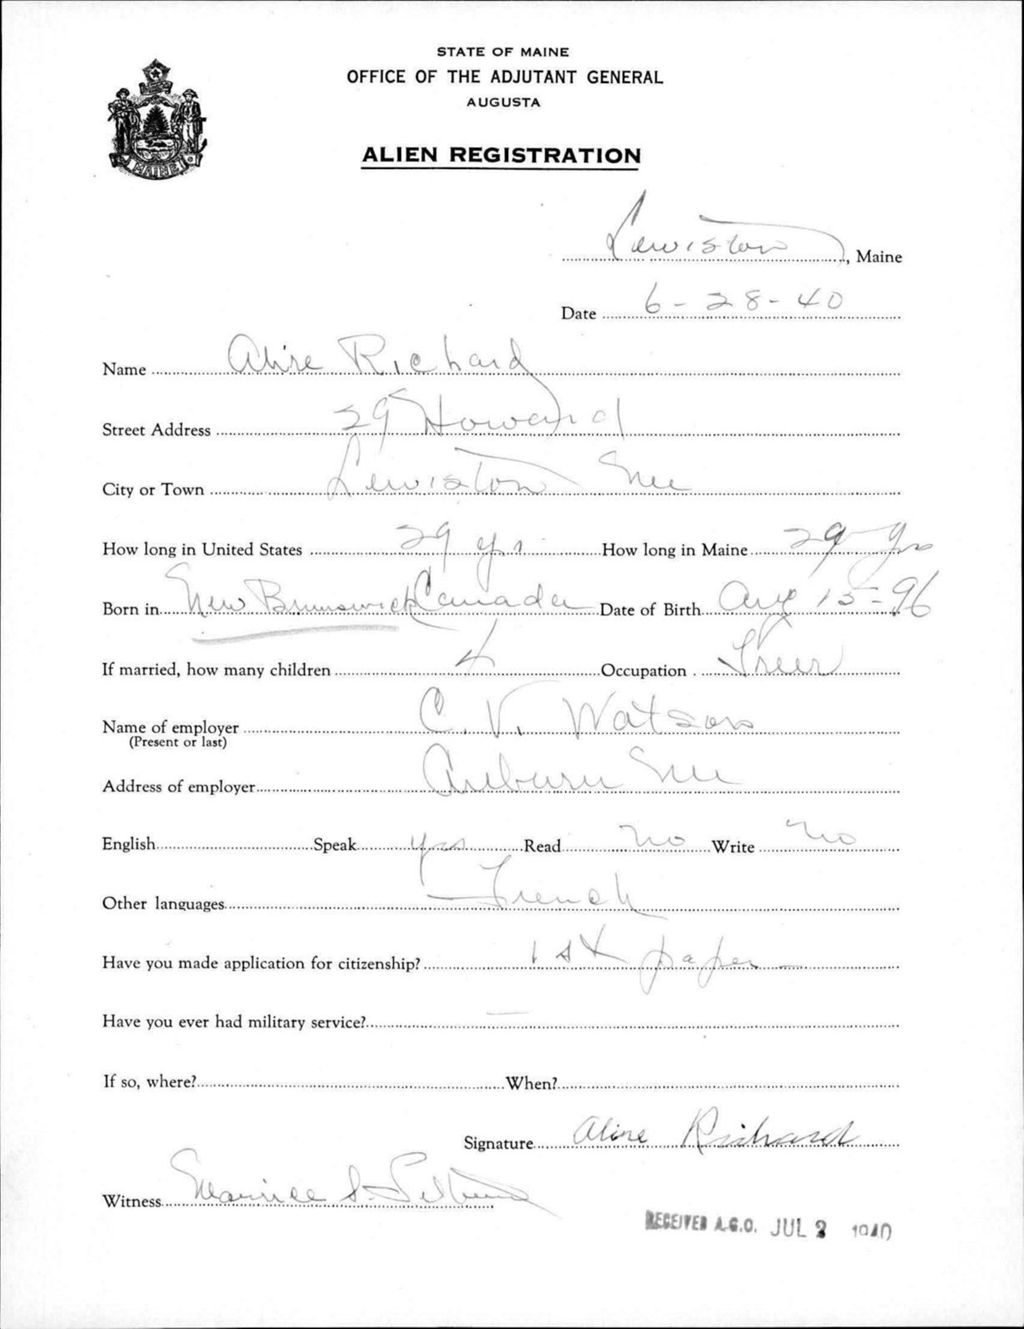 STATE OF MAINE
OFFICE OF THE ADJUTANT GENERAL
AUGUSTA
MAINE
ALIEN REGISTRATION
Lewiston, Maine
Date 6-28-40
Name Alire Richard
Street Address 29 Howard
City or Town Lewiston Me
How long in United States 29 yrs How long in Maine 29 yrs
Born in New Brunswick Canada Date of Birth Aug 15-96
If married, how many children 4 Occupation Treer
Name of employer C. V. Watson
(Present or last)
Address of employer Auburn Me
English Speak yes Read no Write no
Other languages French
Have you made application for citizenship? 1st paper
Have you ever had military service? —
If so, where? When?
Signature Alire Richard
Witness Maurice S.
RECEIVED A.G.O. JUL 2 1940